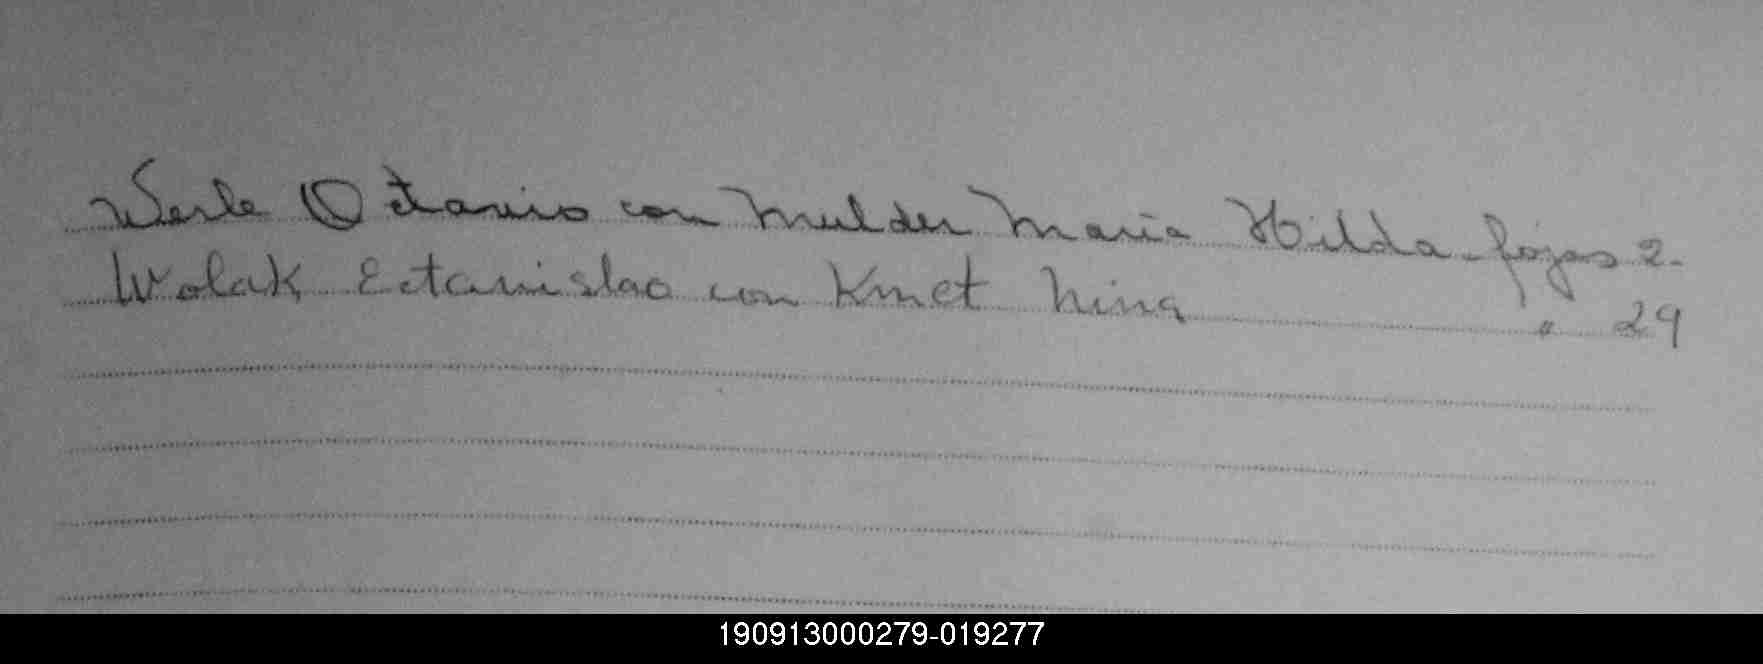 Werle Octavio con Mulder Maria Hilda - fojas 2 -
Wolak Estanislao con Kmet Nina " 29
190913000279-019277